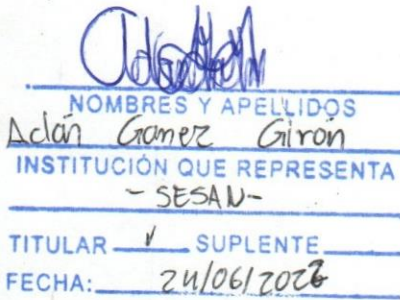 NOMBRES Y APELLIDOS
Adán Gamez Girón
INSTITUCIÓN QUE REPRESENTA
- SESAN -
TITULAR ✓ SUPLENTE
FECHA: 24/06/2022